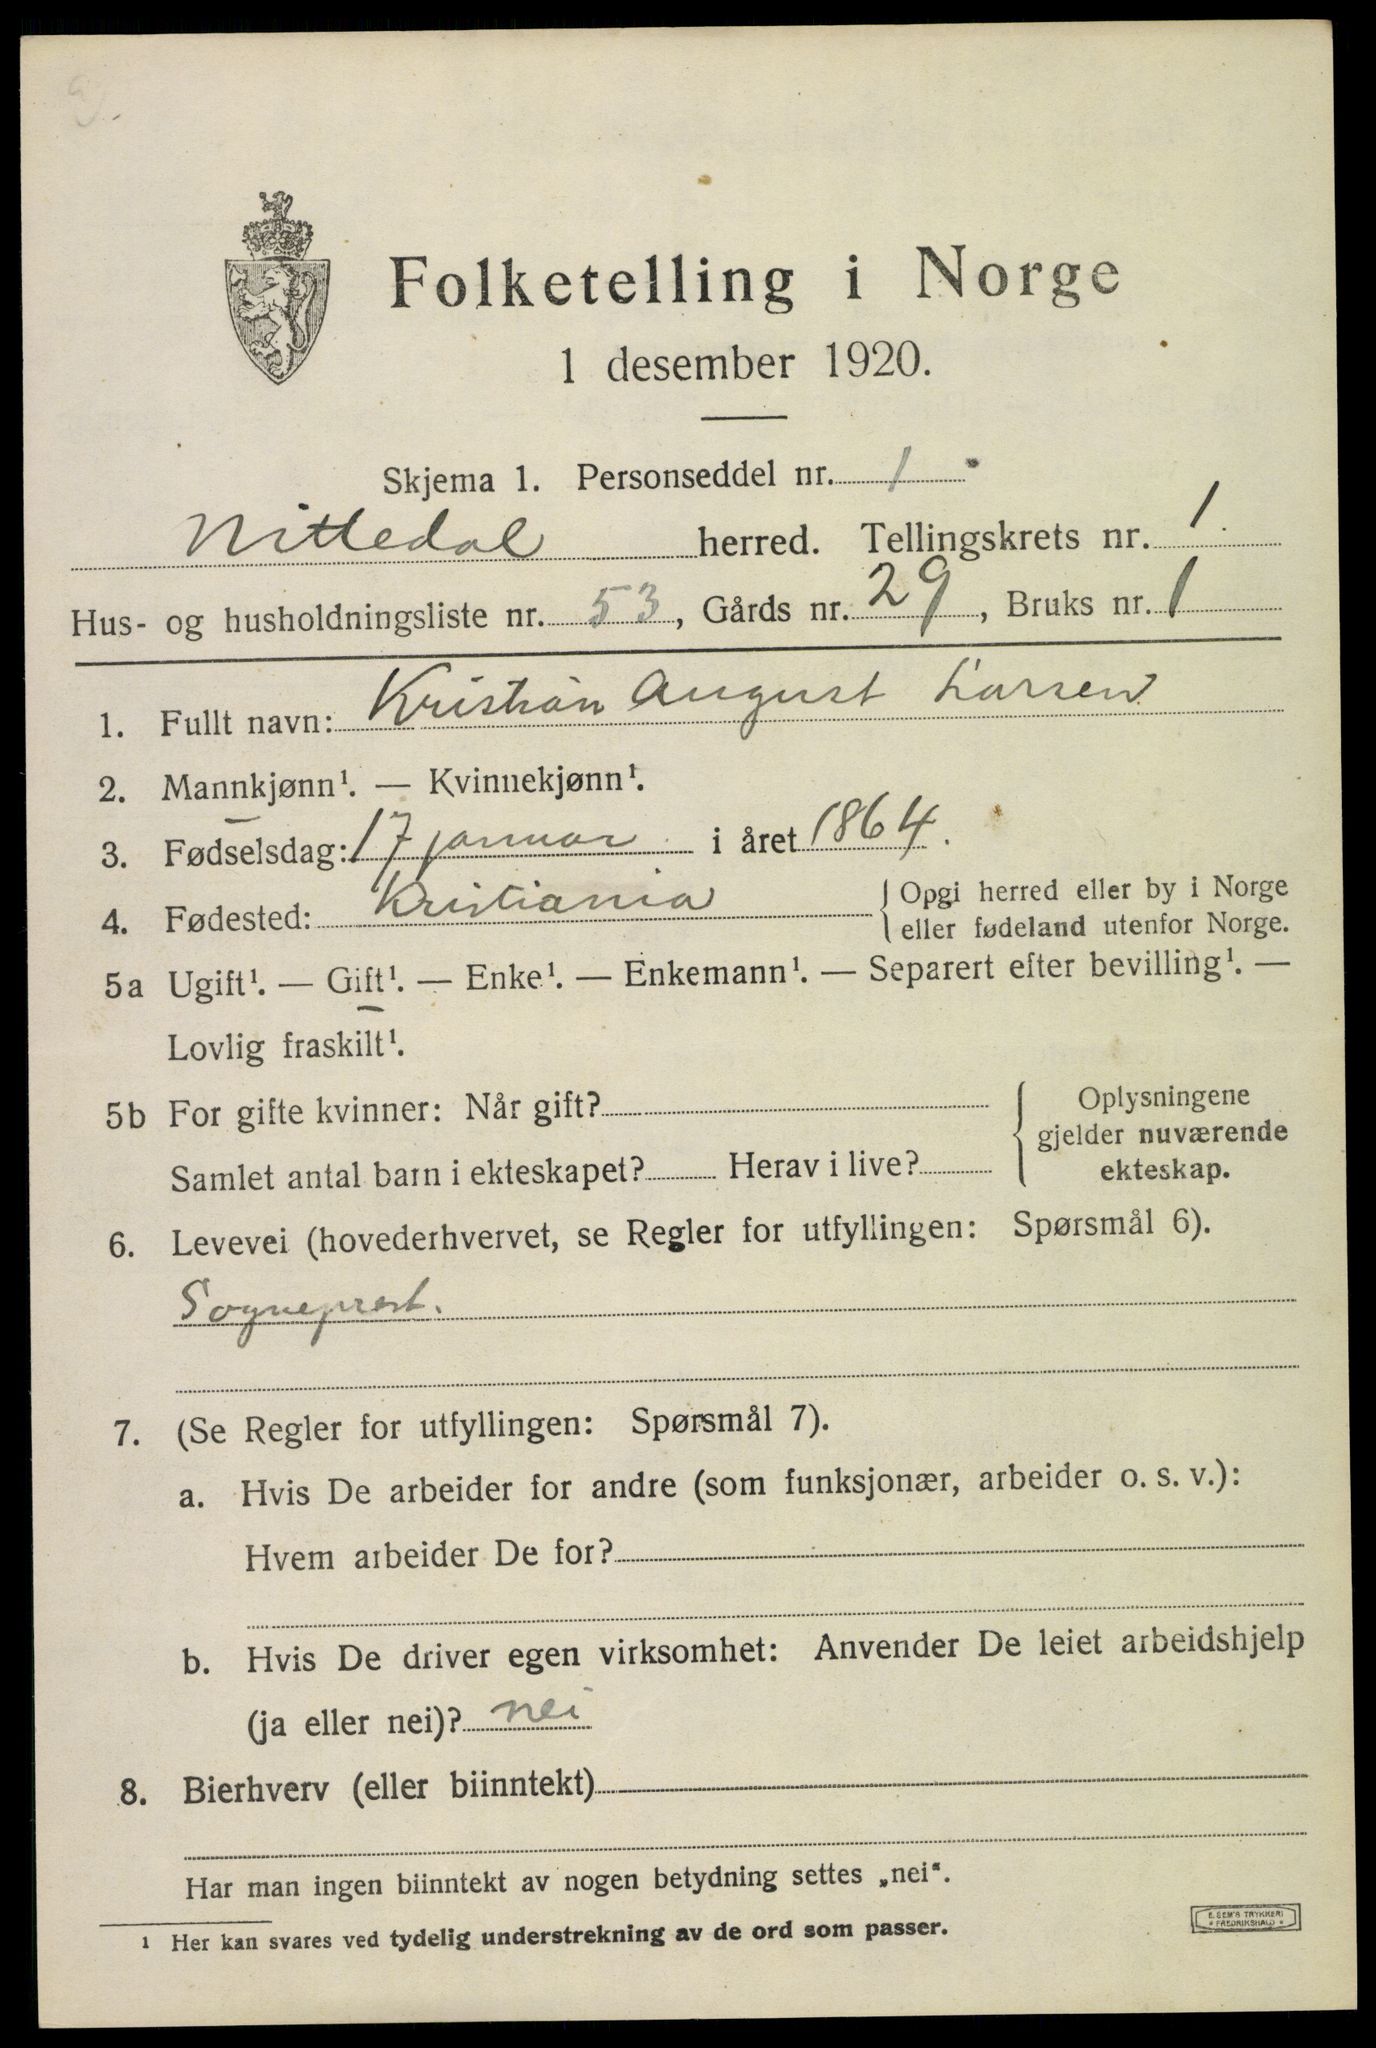 Folketelling i Norge
1 desember 1920.
Skjema 1. Personseddel nr. 1
Nittedal herred. Tellingskrets nr. 1.
Hus- og husholdningsliste nr. 53, Gårds nr. 29, Bruks nr. 1
1. Fullt navn: Kristian August Larsen
2. Mannkjønn¹. — Kvinnekjønn¹.
3. Fødselsdag: 17 januar i året 1864.
4. Fødested: Kristiania { Opgi herred eller by i Norge
eller fødeland utenfor Norge.
5a Ugift¹. — Gift¹. — Enke¹. — Enkemann¹. — Separert efter bevilling¹. —
Lovlig fraskilt¹.
5b For gifte kvinner: Når gift? { Oplysningene
gjelder nuværende
Samlet antal barn i ekteskapet? Herav i live? ekteskap.
6. Levevei (hovederhvervet, se Regler for utfyllingen: Spørsmål 6).
Sogneprest.
7. (Se Regler for utfyllingen: Spørsmål 7).
a. Hvis De arbeider for andre (som funksjonær, arbeider o. s. v.):
Hvem arbeider De for?
b. Hvis De driver egen virksomhet: Anvender De leiet arbeidshjelp
(ja eller nei)? nei
8. Bierhverv (eller biinntekt)
Har man ingen biinntekt av nogen betydning settes „nei“.
¹ Her kan svares ved tydelig understrekning av de ord som passer.
E. SEM'S TRYKKERI
* FREDRIKSHALD *